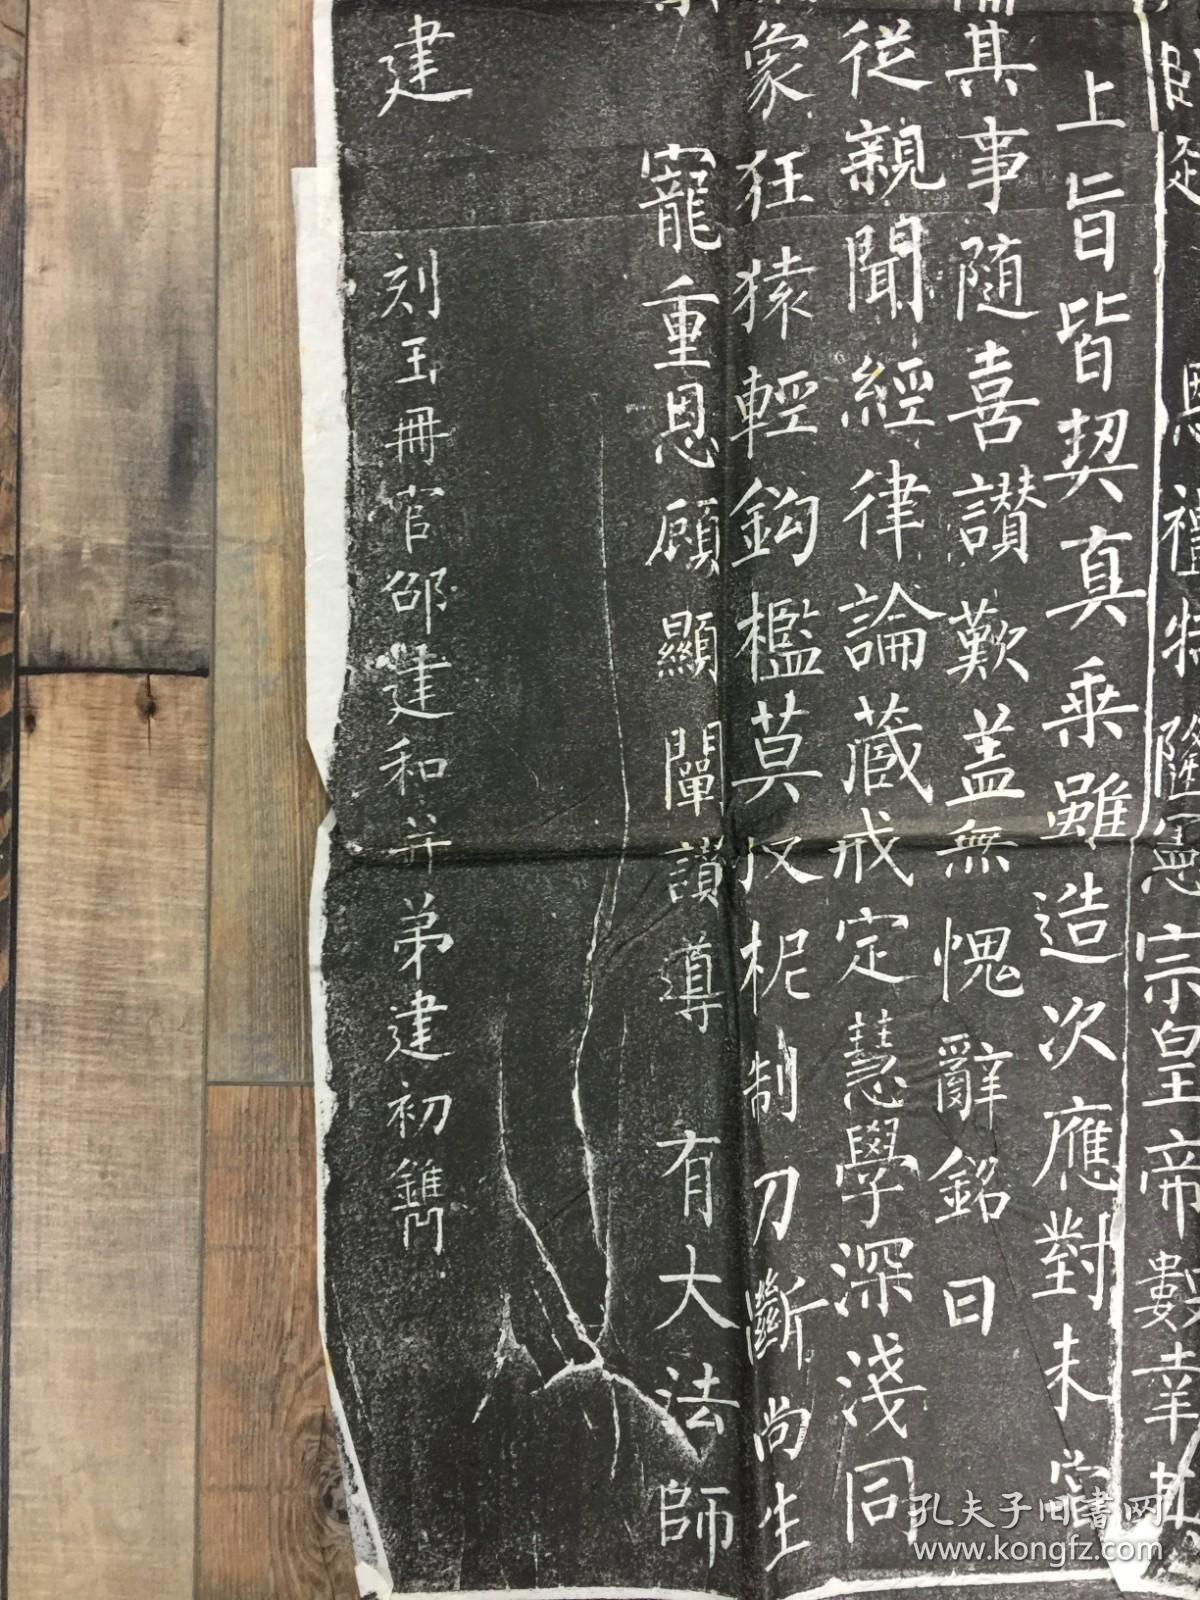 卧起恩禮特隆憲宗皇帝數幸
上旨皆契真乘雖造次應對未嘗
其事隨喜讚歎盖無愧辭銘曰
從親聞經律論藏戒定慧學深淺同
象狂猿輕鈎檻莫收柅制刀斷尚生
寵重恩顧顯闡讚導有大法師
建 刻玉冊官邵建和并弟建初鐫
孔夫子旧书网
www.kongfz.com